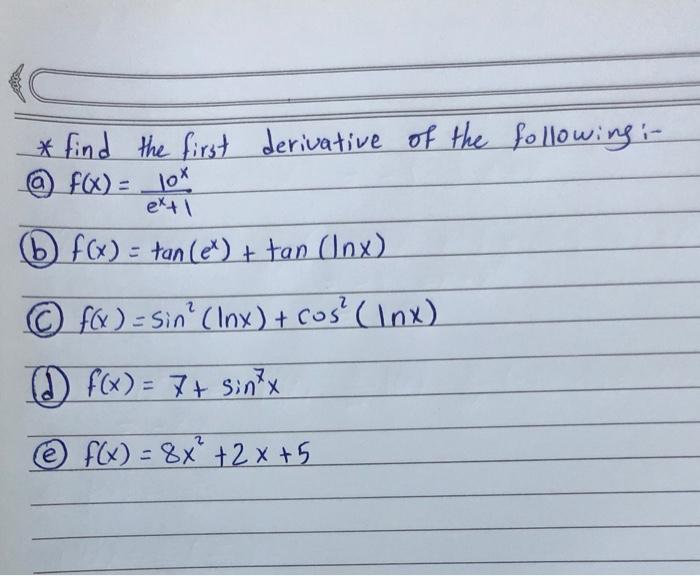 * find the first derivative of the following:-
ⓐ f(x) = 10ˣ / eˣ+1
ⓑ f(x) = tan(eˣ) + tan (lnx)
ⓒ f(x) = sin² (lnx) + cos² (lnx)
ⓓ f(x) = 7 + sin⁷x
ⓔ f(x) = 8x² + 2x + 5